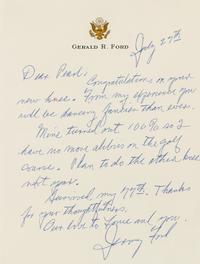 GERALD R. FORD
July 27th
Dear Pearl:
Congratulations on your
new knee. From my experience you
will be dancing fancier than ever.
Mine turned out 100% so I
have no more alibis on the golf
course. Plan to do the other knee
next year.
Survived my 77th. Thanks
for your thoughtfulness.
Our love to Louie and you.
Jerry Ford